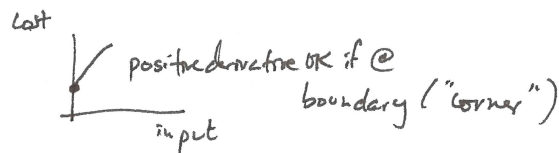 cost
positive derivative OK if @
boundary ("corner")
input